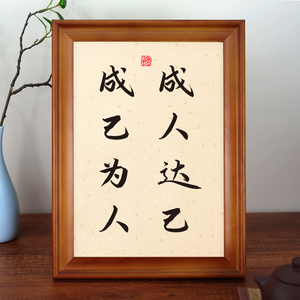 成人达己
成己为人